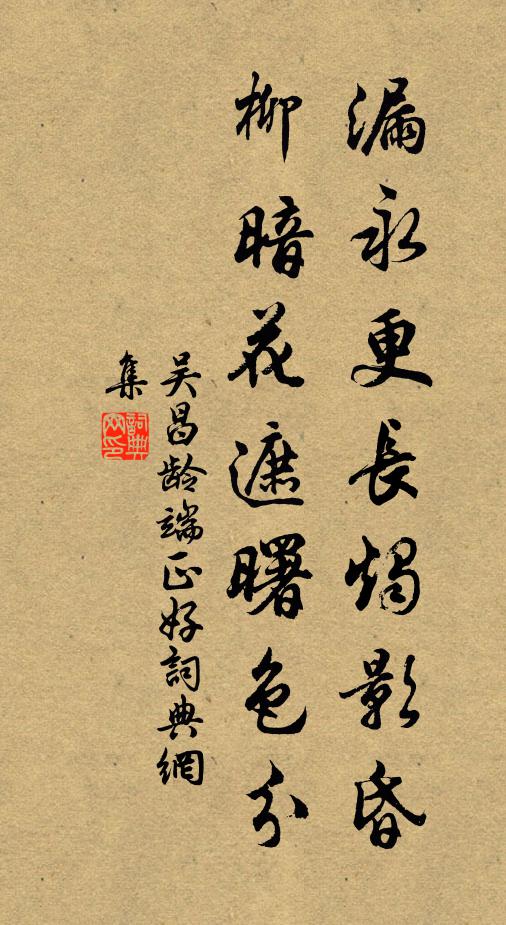 漏永更長燭影昏
柳暗花遮曙色分
吴昌龄端正好詞典網
集
詞典網印